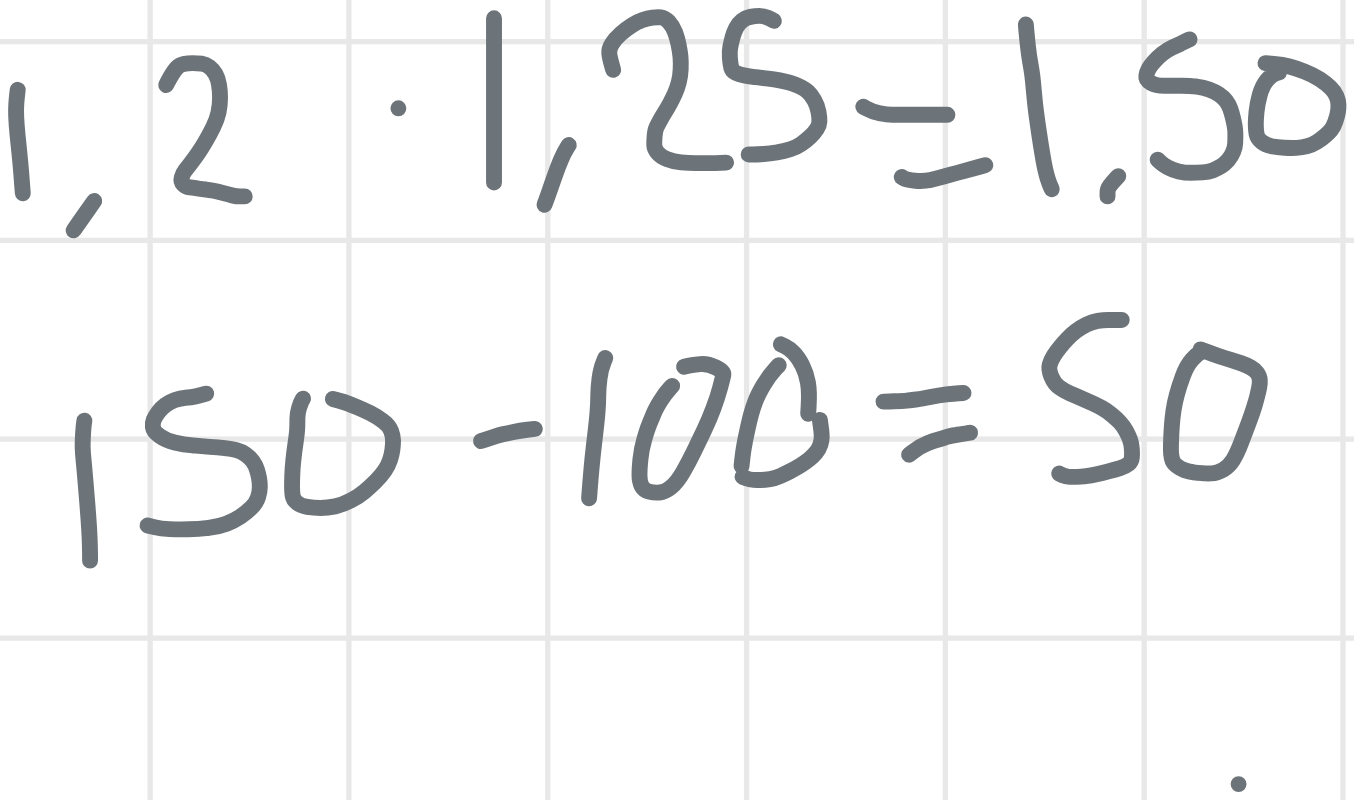 1,2 · 1,25 = 1,50
150 - 100 = 50